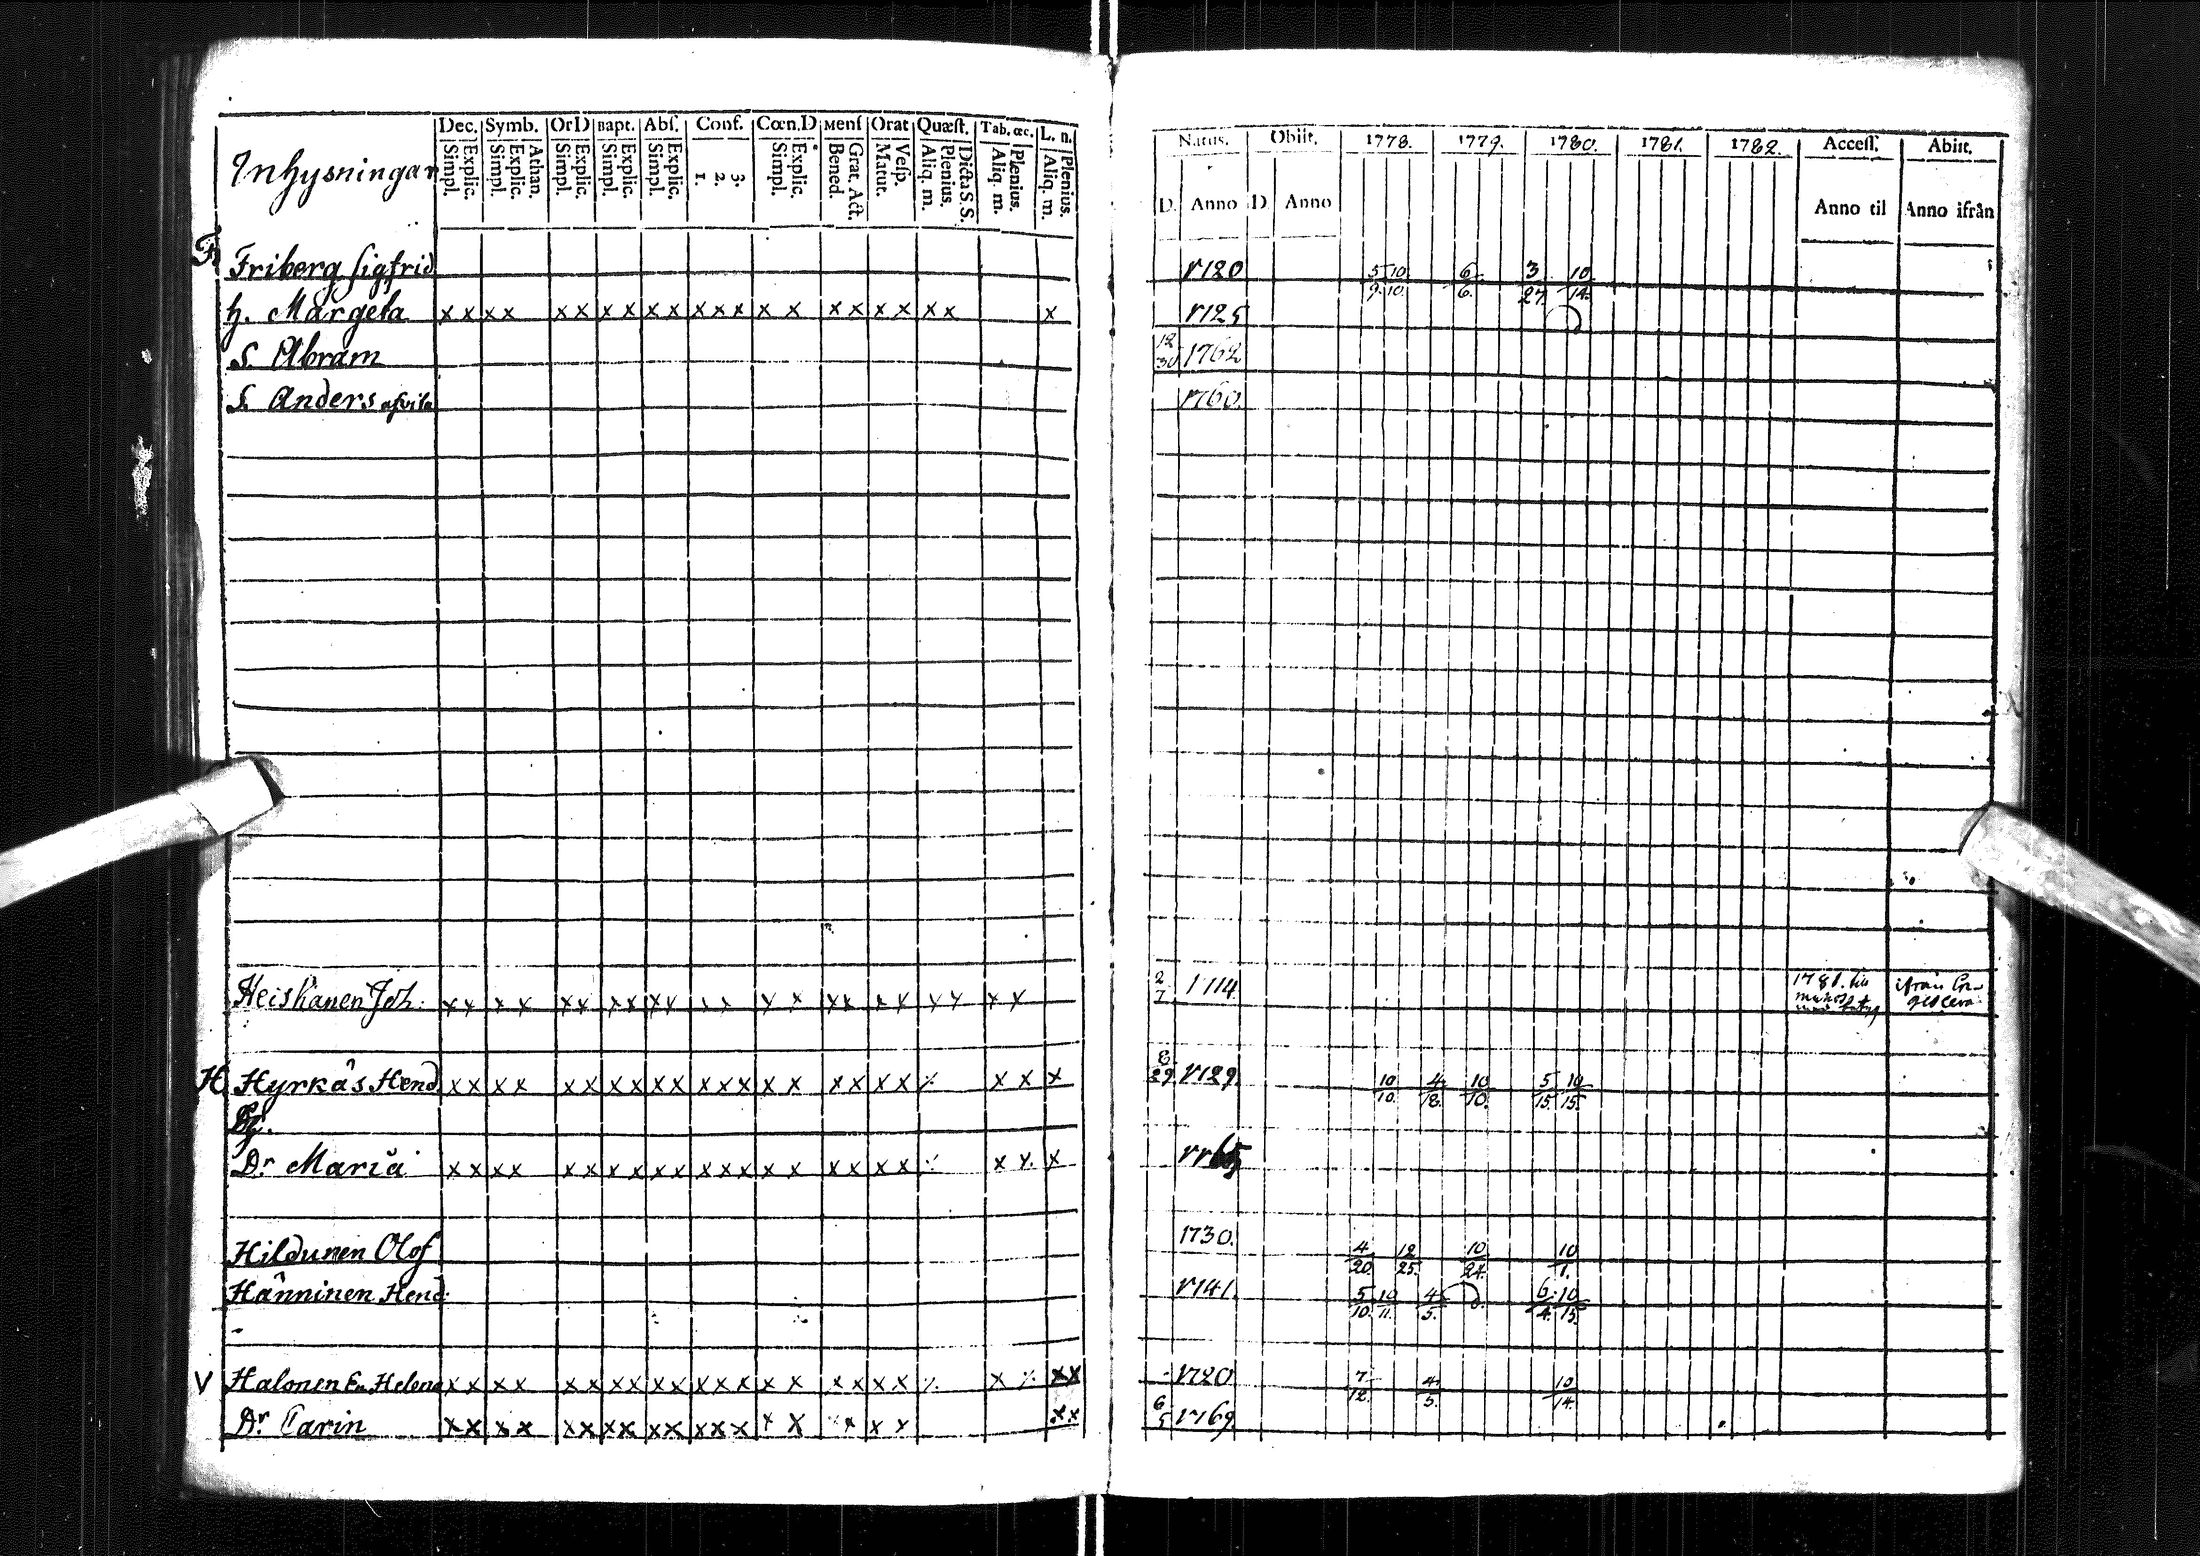 Inhysningar Dec. Symb. OrD Bapt. Abs. Conf. Cœn.D Mens Orat Quæst. Tab. œc. L. n.
Simpl. Explic. Simpl. Explic. Athan. Simpl. Explic. Simpl. Explic. Simpl. Explic. 1. 2. 3. Simpl. Explic. Bened. Grat. Act. Matut. Vesp. Aliq. m. Plenius. Dicta S.S. Aliq. m. Plenius. Aliq. m. Plenius.
Fr
Friberg Sigfrid
h. Margeta x x x x x x x x x x x x x x x x x x x x x x
S. Abram
S. Anders
Heiskanen Joh. x x x x x x x x x x x x x x x x x x x x x x
H Hyrkäs Hend. x x x x x x x x x x x x x x x x x x x ⁒ x x x
Dr Maria x x x x x x x x x x x x x x x x x x ⁒ x x x
Hildunen Olof
Hänninen Hend.
V Halonen En. Helena x x x x x x x x x x x x x x x x x x x ⁒ x ⁒ x x
Dr Carin x x x x x x x x x x x x x x x x x x x x x
Natus. Obiit. 1778. 1779. 1780. 1781. 1782. Access. Abiit.
D. Anno D. Anno Anno til Anno ifrån
1720 5/9 10/10 6/6 3/27 10/14
1725
12/30 1762
1760.
2/7 1714 1781. ifrån
8/29 1729. 10/10 4/18 10/10 5/15 10/15
1765
1730. 4/20 12/25 10/24 10/1
1741. 5/10 10/11 4/5 6/4 10/15
1720 7/12 4/5 10/14
6/5 1769.